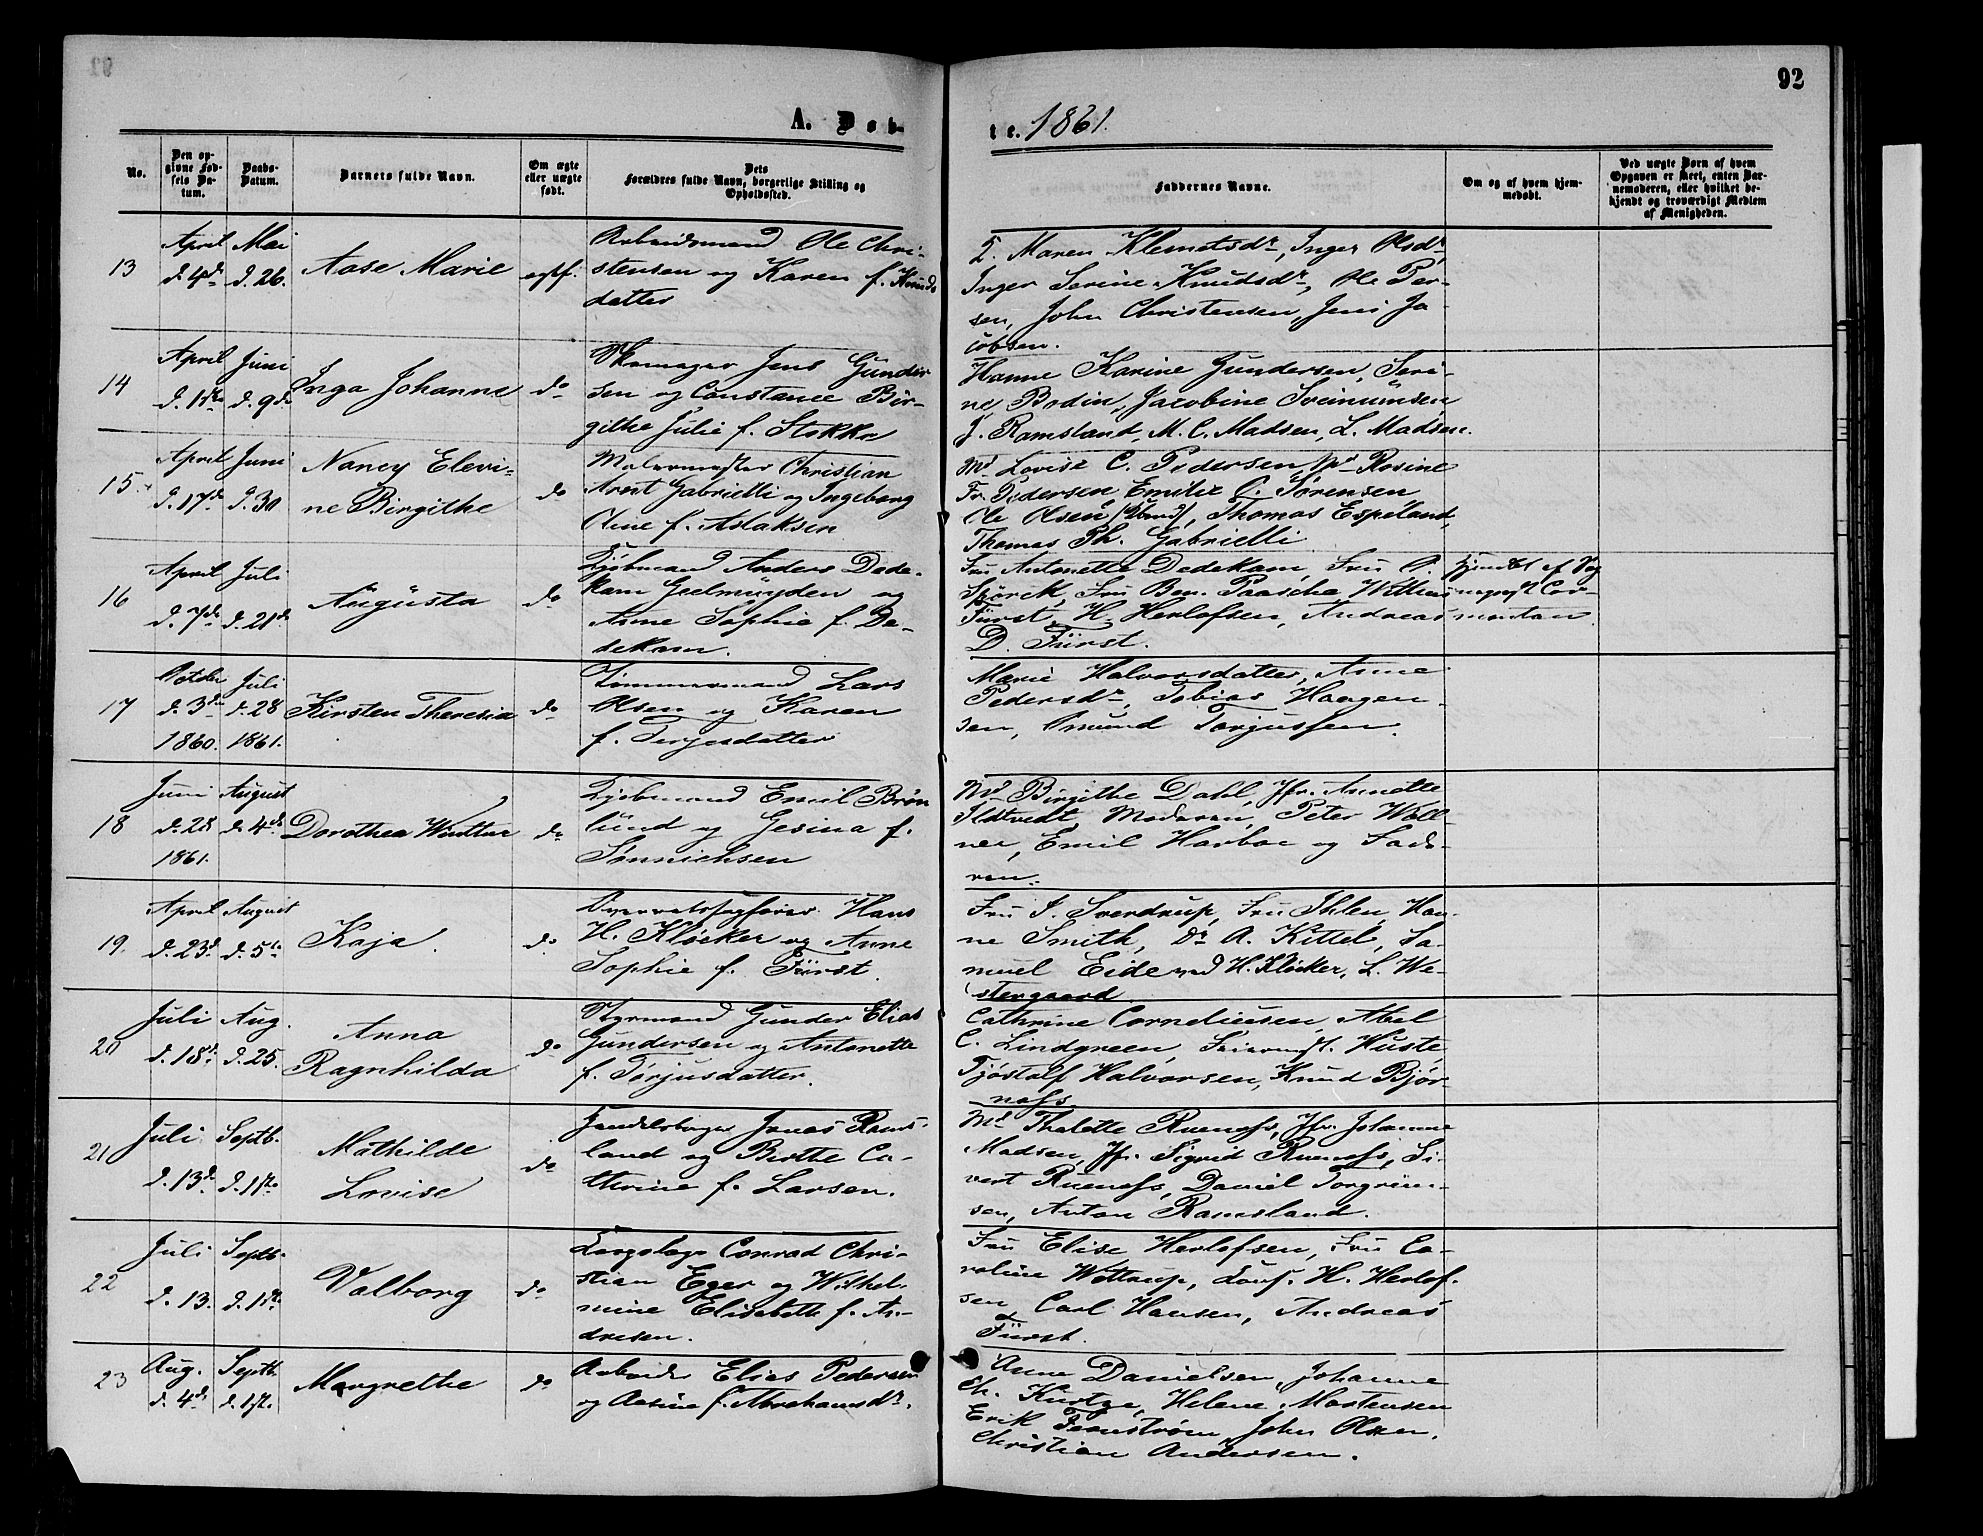 92
A. Døb-
te. 1861.
No.
Den opgivne Fødsels Datum.
Daabs-Datum.
Barnets fulde Navn.
Om ægte eller uægte født.
Dets Forældres fulde Navn, borgerlige Stilling og Opholdssted.
Faddernes Navne.
Om og af hvem hjemmedøbt.
Ved uægte Børn af hvem Opgaven er skeet, enten Barnemoderen, eller hvilket bekjendt og troværdigt Medlem af Menigheden.
13
April
d. 4de
Mai
d. 26.
Aase Marie
egtf.
Arbeidsmand Ole Chri-
stensen og Karen f. Knuds
datter
Maren Klemetsdr, Inger Olsdr,
Inger Serine Knudsdr, Ole Per-
sen, John Christensen, Jens Ja-
cobsen.
14
April
d. 1ste
Juni
d. 9de
Inga Johanne
do
Skomager Jens Gunder
sen og Constance Bir-
githe Julie f. Stokke
Hanne Karine Gundersen, Seri-
ne Bodin, Jacobine Sveinumsen
J. Ramsland, M. C. Madsen, L. Madsen.
15
April
d. 17de
Juni
d. 30
Nancy Elevi-
ne Birgithe
do
Malermester Christian
Arnt Gabrielli og Ingeborg
Oline f. Aslaksen
Md Lovise C. Pedersen, Md Rosine
Fr. Pedersen, Emilie C. Sørensen
Ole Olsen, Thomas Espeland,
Thomas Th. Gabrielli
16
April
d. 7de
Juli
d. 21de
Augusta
do
Kjøbmand Anders Dede-
kam Geelmuyden og
Anne Sophie f. De-
dekam.
Fru Antonette Dedekam, Fru C.
Spörck, Fru Ben. Paasche, William
Fürst, H. Herlofsen, Andreas
D. Fürst.
hjemdøbt af
17
October
d. 3de
1860.
Juli
d. 28
1861.
Kirsten Theresia
do
Tømmermand Lars
Olsen og Karen
f. Terjesdatter
Marie Halvorsdatter, Anne
Pedersdr, Tobias Haagen-
sen, Omund Torjussen.
18
Juni
d. 28
1861.
August
d. 4de
Dorothea
do
Kjøbmand Emil Brøn
lund og Gesina f.
Sønnichsen
Md Birgithe Dahl, Jfr. Annette
Ildtvedt, Moderen, Peter Woll-
ner, Emil Harboe og Fade-
ren.
19.
April
d. 23de
August
d. 5te
Kaja.
do
Overretssagfører Hans
H. Kløcker og Anne
Sophie f. Fürst.
Fru J. Sverdrup, Fru Ihlen, Han-
ne Smith, Dr A. Kittel, Sa-
muel Eide ved H. Kløcker, L. We-
stergaard
20
Juli
d. 18de
Aug.
d. 25.
Anna
Ragnhilda
do
Styrmand Gunder Elias
Gundersen og Antonette
f. Torjusdatter.
Cathrine Corneliusen, Abel
C. Lindgreen, Huste
Tjøstolf Halvorsen, Knud Bjør-
næss
21
Juli
d. 13de
Septb.
d. 1ste
Mathilde
Lovise
do
Handelsborger Jonas Rams-
land og Berthe Ca-
thrine f. Larsen.
Md Thalette Ruenæss, Jfr. Johanne
Madsen, Jfr. Sigrid Ruenæss, Si-
vert Ruenæss, Daniel Torgrim-
sen, Anton Ramsland.
22
Juli
d. 13.
Septb.
d. 1ste.
Valborg
do
Corpslæge Conrad Chri-
stian Eger og Wilhel-
mine Elisabeth f. An-
dresen.
Fru Elise Herlofsen, Fru Ca-
roline Wettrup, H. Herlof-
sen, Carl Hansen, Andreas
Fürst.
23
Aug.
d. 4de
Septb.
d. 1ste
Margrethe
do
Arbeider Elias Pedersen
og Aasine f. Abrahamsdr.
Anne Danielsen, Johanne
Ch. Helene Mortensen
Erik John Olsen,
Christian Andersen.